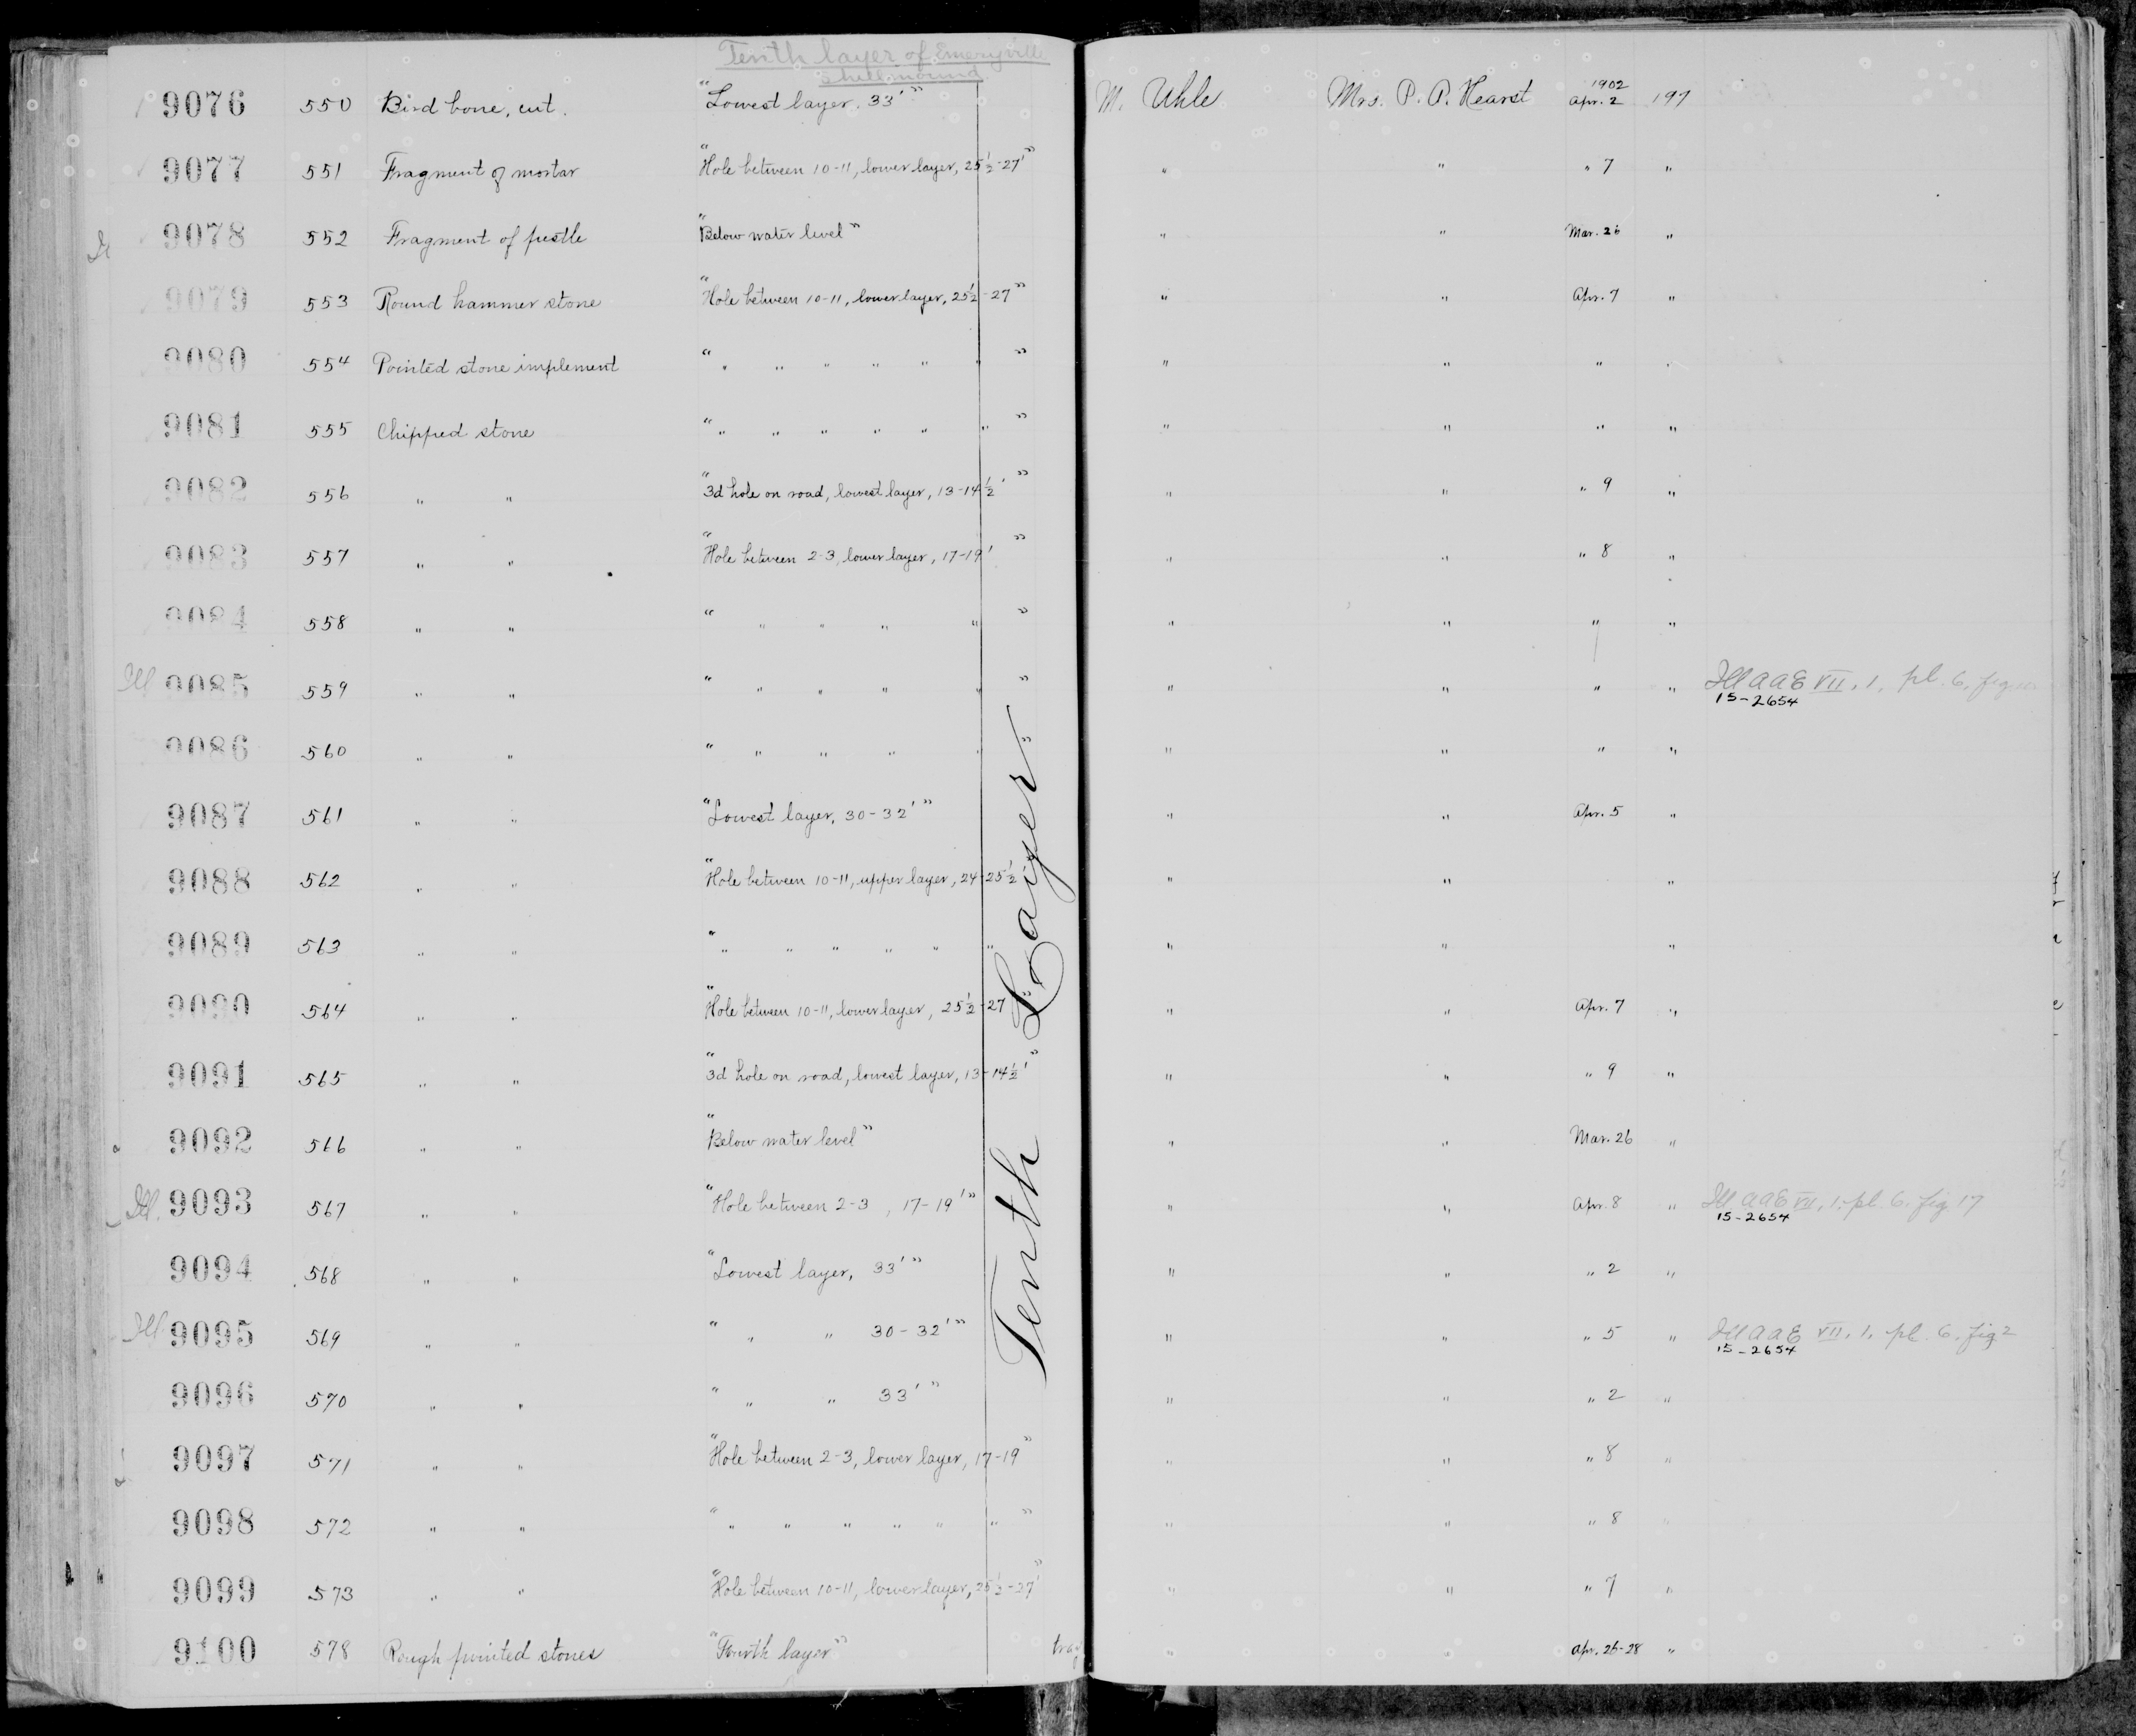 Tenth layer of Emeryville
shellmound
9076 550 Bird bone, cut. "Lowest layer. 33'" M. Uhle Mrs. P. A. Hearst 1902 Apr. 2 197
9077 551 Fragment of mortar "Hole between 10-11, lower layer, 25 1/2-27'" " " " 7 "
9078 552 Fragment of pestle "Below water level" " " Mar. 26 "
9079 553 Round hammer stone "Hole between 10-11, lower layer, 25 1/2-27" " " Apr. 7 "
9080 554 Pointed stone implement " " " " " " " " " " " "
9081 555 Chipped stone " " " " " " " " " " " "
9082 556 " " "3d hole on road, lowest layer, 13-14 1/2'" " " " 9 "
9083 557 " " "Hole between 2-3, lower layer, 17-19'" " " " 8 "
9084 558 " " " " " " " " " " " "
Ill 9085 559 " " " " " " " " " " " " Ill AAE VII, 1, pl. 6, fig.
15-2654
9086 560 " " " " " " " " " " "
9087 561 " " "Lowest layer, 30-32'" " " Apr. 5 "
9088 562 " " "Hole between 10-11, upper layer, 24-25 1/2' " " "
9089 563 " " " " " " " " " " " "
9090 564 " " "Hole between 10-11, lower layer, 25 1/2-27 " " Apr. 7 "
9091 565 " " "3d hole on road, lowest layer, 13-14 1/2'" " " " 9 "
9092 566 " " "Below water level" " " Mar. 26 "
Ill. 9093 567 " " "Hole between 2-3, 17-19'" " " Apr. 8 " Ill. AAE VII, 1, pl. 6. fig 17
15-2654
9094 568 " " "Lowest layer, 33'" " " " 2 "
Ill 9095 569 " " " " " 30-32'" " " " 5 " Ill AAE VII, 1, pl. 6, fig 2
15-2654
9096 570 " " " " " 33'" " " " 2 "
9097 571 " " "Hole between 2-3, lower layer, 17-19" " " " 8 "
9098 572 " " " " " " " " " " " " " 8 "
9099 573 " " "Hole between 10-11, lower layer, 25 1/2-27'" " " " 7 "
9100 578 Rough pointed stones "Fourth layer" tray " " Apr. 26-28 "
"Tenth "Layer"